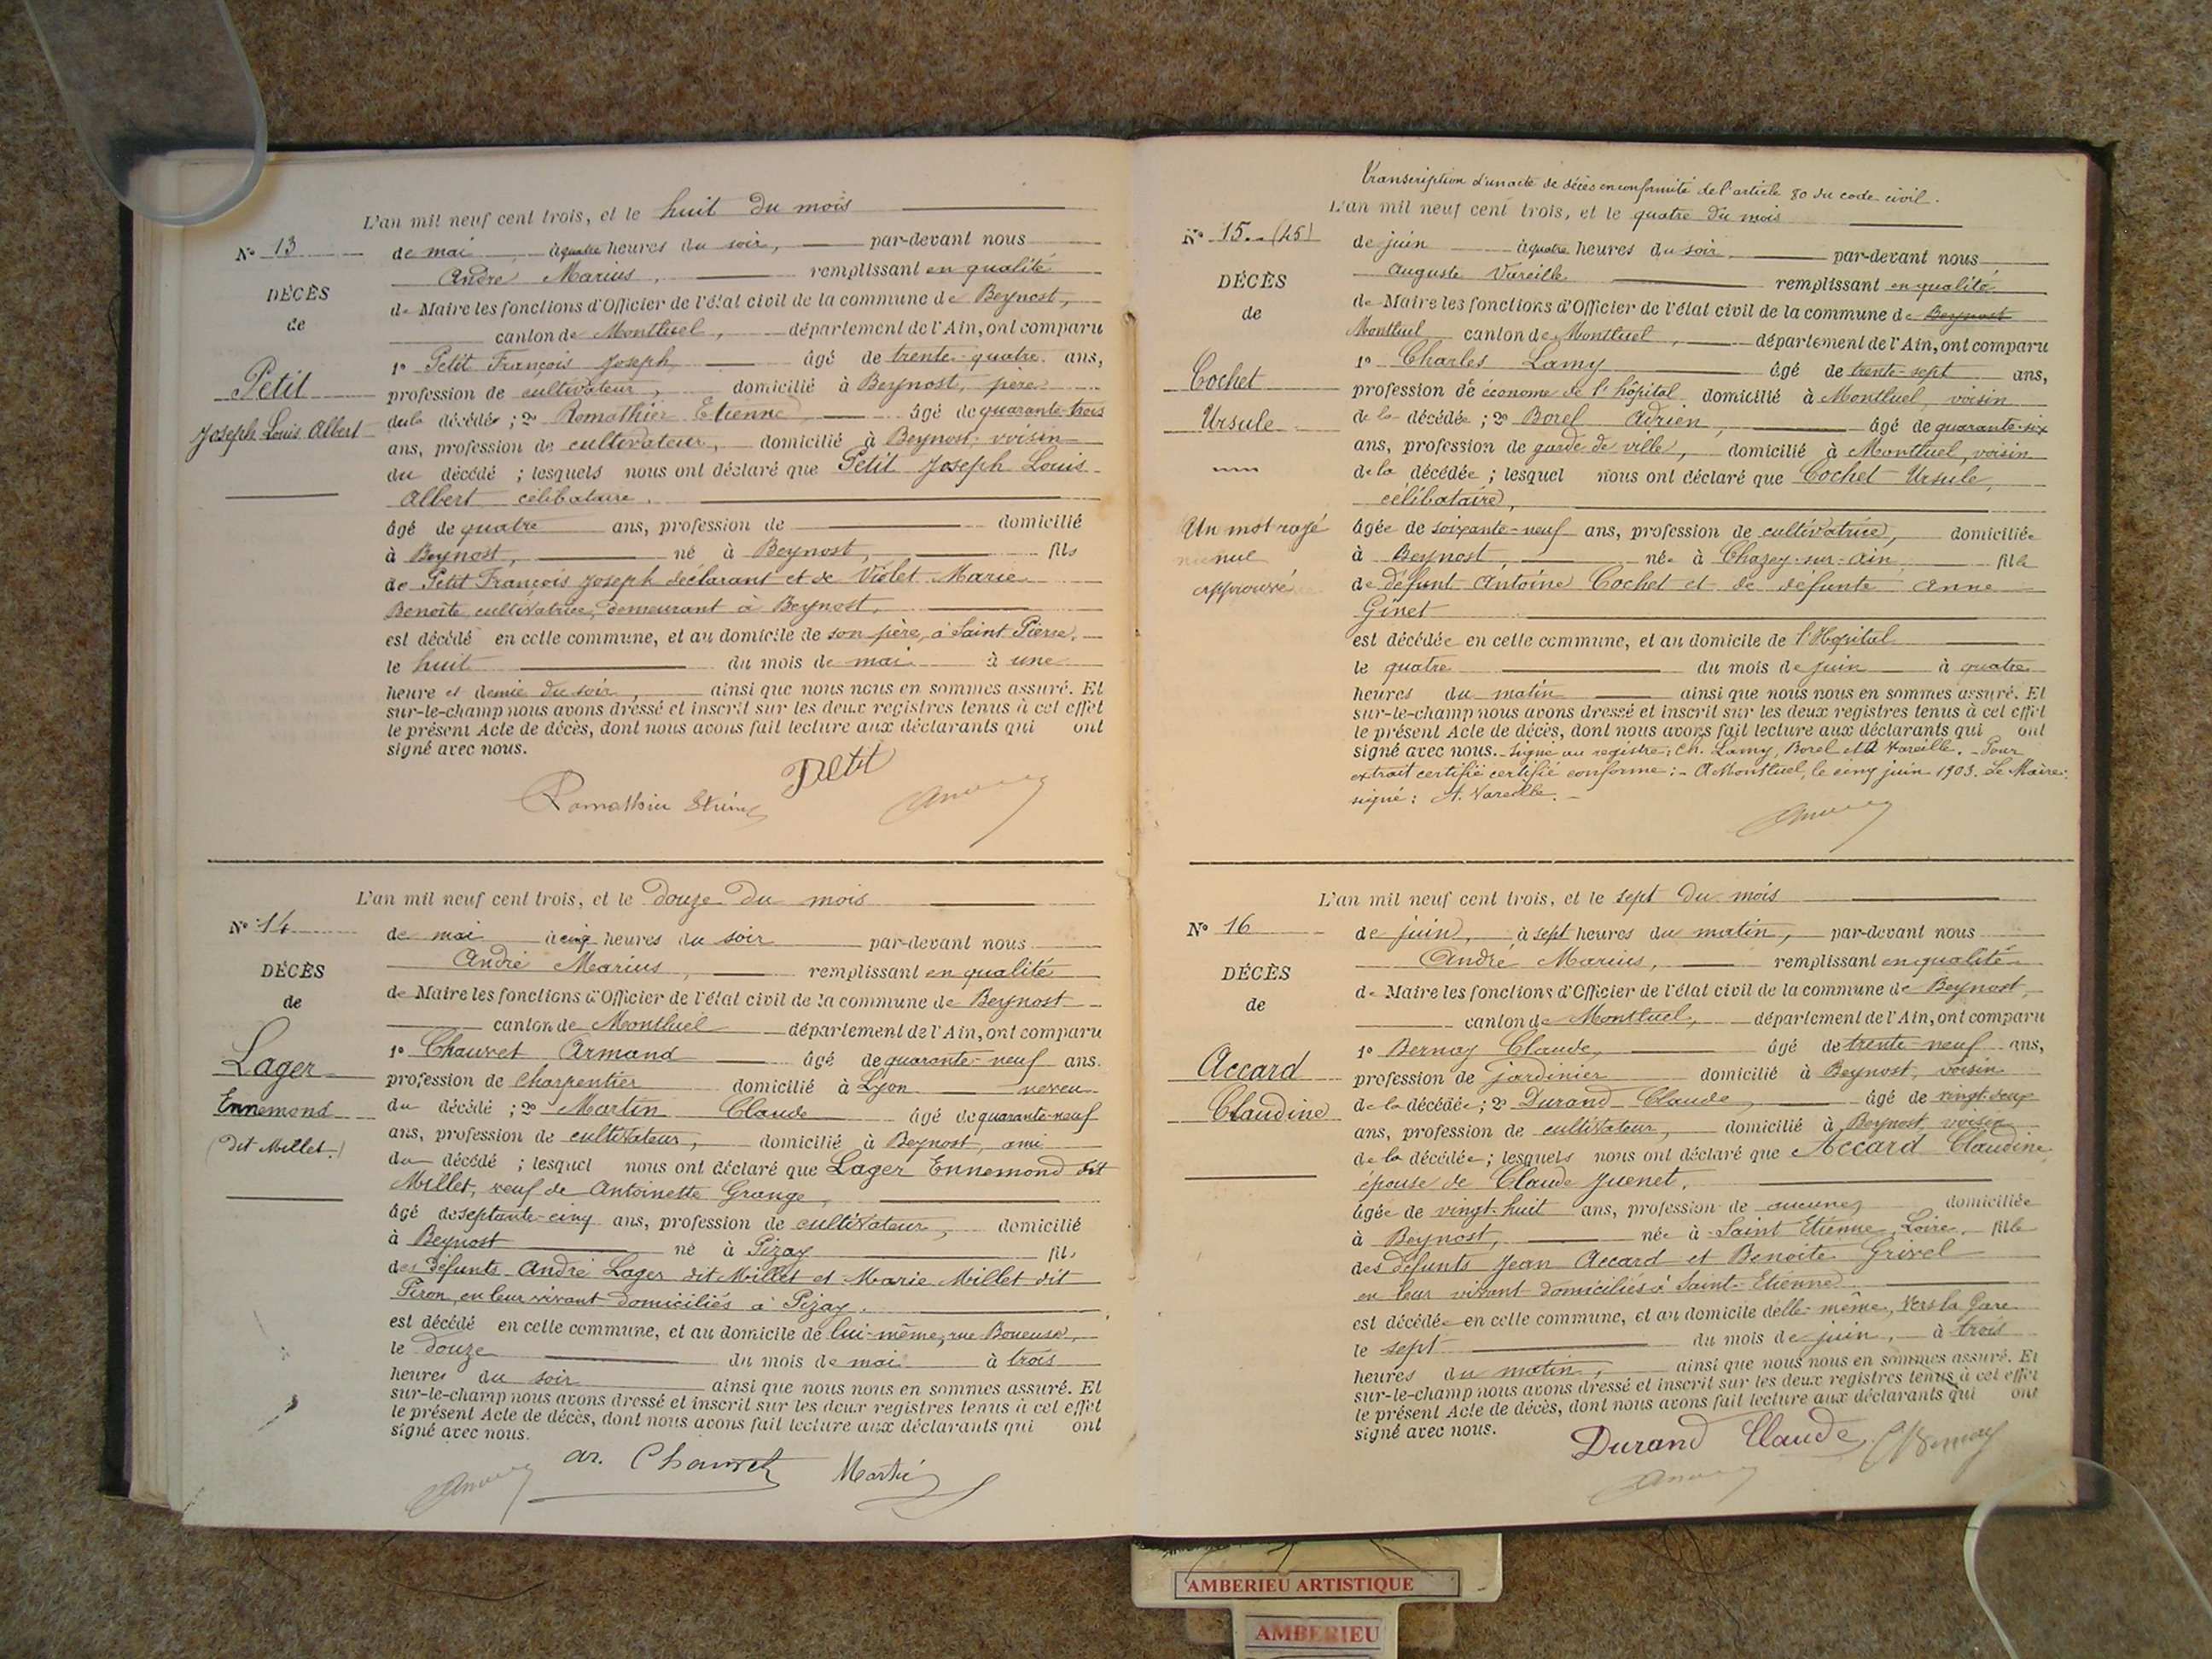 L'an mil neuf cent trois, et le huit du mois
N° 13
de mai à quatre heures du soir, par-devant nous
André Marius, remplissant en qualité
DÉCÈS
de Maire les fonctions d'Officier de l'état civil de la commune de Beynost,
de
canton de Montluel, département de l'Ain, ont comparu
1° Petit François Joseph âgé de trente-quatre ans,
Petit
profession de cultivateur, domicilié à Beynost, père
Joseph Louis Albert
du décédé ; 2° Romathier Etienne âgé de quarante-trois
ans, profession de cultivateur, domicilié à Beynost, voisin
du décédé ; lesquels nous ont déclaré que Petit Joseph Louis
Albert célibataire.
âgé de quatre ans, profession de domicilié
à Beynost, né à Beynost, fils
de Petit François Joseph déclarant et de Violet Marie
Benoîte cultivatrice, demeurant à Beynost,
est décédé en cette commune, et au domicile de son père, à Saint Pierre,
le huit du mois de mai à une
heure et demie du soir, ainsi que nous nous en sommes assuré. Et
sur-le-champ nous avons dressé et inscrit sur les deux registres tenus à cet effet
le présent Acte de décès, dont nous avons fait lecture aux déclarants qui ont
signé avec nous.
Petit
Romathier Etienne
L'an mil neuf cent trois, et le douze du mois
N° 14
de mai à cinq heures du soir par-devant nous
André Marius, remplissant en qualité
DÉCÈS
de Maire les fonctions d'Officier de l'état civil de la commune de Beynost
de
canton de Montluel département de l'Ain, ont comparu
Lager
1° Chauvet Armand âgé de quarante-neuf ans.
profession de charpentier domicilié à Lyon neveu
Ennemond
du décédé ; 2° Martin Claude âgé de quarante-neuf
(dit Millet.)
ans, profession de cultivateur, domicilié à Beynost, ami
du décédé ; lesquel nous ont déclaré que Lager Ennemond dit
Millet, veuf de Antoinette Grange,
âgé de septante-cinq ans, profession de cultivateur, domicilié
à Beynost né à Pizay fils
des défunts André Lager dit Millet et Marie Millet dit
Piron, en leur vivant domiciliés à Pizay.
est décédé en cette commune, et au domicile de lui-même, rue Boueuse,
le douze du mois de mai à trois
heures du soir ainsi que nous nous en sommes assuré. Et
sur-le-champ nous avons dressé et inscrit sur les deux registres tenus à cet effet
le présent Acte de décès, dont nous avons fait lecture aux déclarants qui ont
signé avec nous.
ar. Chauvet Martin
Transcription d'un acte de décès en conformité de l'article 80 du code civil.
L'an mil neuf cent trois, et le quatre du mois
N° 15. (45)
de juin à quatre heures du soir, par-devant nous
Auguste Vareille remplissant en qualité
DÉCÈS
de Maire les fonctions d'Officier de l'état civil de la commune de Beynost
de
Montluel canton de Montluel, département de l'Ain, ont comparu
1° Charles Lamy âgé de trente-sept ans,
Cochet
profession de économe de l'hôpital domicilié à Montluel, voisin
Ursule
de la décédée ; 2° Borel Adrien, âgé de quarante-six
ans, profession de garde de ville, domicilié à Montluel, voisin
de la décédée ; lesquel nous ont déclaré que Cochet Ursule,
célibataire,
Un mot rayé
âgée de soixante-neuf ans, profession de cultivatrice, domiciliée
nul
à Beynost, née à Chazey-sur-Ain fille
approuvé
de défunt Antoine Cochet et de défunte Anne
Ginet
est décédée en cette commune, et au domicile de l'Hôpital
le quatre du mois de juin à quatre
heures du matin ainsi que nous nous en sommes assuré. Et
sur-le-champ nous avons dressé et inscrit sur les deux registres tenus à cet effet
le présent Acte de décès, dont nous avons fait lecture aux déclarants qui ont
signé avec nous. Signé au registre, Ch. Lamy, Borel et A Vareille. - Pour
extrait certifié certifié conforme : - A Montluel, le cinq juin 1903. Le Maire :
signé : A. Vareille. -
L'an mil neuf cent trois, et le sept du mois
N° 16
de juin, à sept heures du matin, par-devant nous
André Marius, remplissant en qualité
DÉCÈS
de Maire les fonctions d'Officier de l'état civil de la commune de Beynost,
de
canton de Montluel, département de l'Ain, ont comparu
Accard
1° Bernay Claude, âgé de trente-neuf ans,
profession de jardinier domicilié à Beynost, voisin
Claudine
de la décédée ; 2° Durand Claude, âgé de vingt-
ans, profession de cultivateur, domicilié à Beynost, voisin
de la décédée ; lesquels nous ont déclaré que Accard Claudine,
épouse de Claude Juenet,
âgée de vingt-huit ans, profession de aucune, domiciliée
à Beynost, née à Saint Etienne, Loire, fille
des défunts Jean Accard et Benoîte Grivel
en leur vivant domiciliés à Saint-Etienne
est décédée en cette commune, et au domicile d'elle-même, vers la Gare
le sept du mois de juin, à trois
heures du matin, ainsi que nous nous en sommes assuré. Et
sur-le-champ nous avons dressé et inscrit sur les deux registres tenus à cet effet
le présent Acte de décès, dont nous avons fait lecture aux déclarants qui ont
signé avec nous.
Durand Claude, C Bernay
AMBERIEU ARTISTIQUE
AMBERIEU